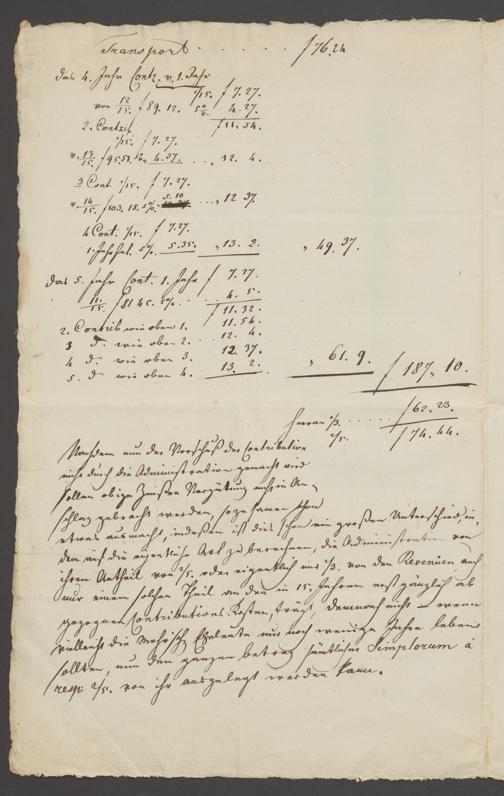 Transport . . . . . . f 76.24
das 4. Jahr Cont. v. 1. Jahr
1/15. f 7.27.
von 12/15. f 89.12. 5% 4.27.
f 11.54.
2. Contrib.
1/15. f 7.27.
v. 13/15. f 95.51. 5% 4.37. . . „ 12. 4.
3 Cont. 1/15. f 7.27.
v. 14/15. f 103.18. 5% 5.10 . . . „ 12 37.
4 Cont. 1/15. f 7.27.
5% 5.35. „ 13. 2. „ 49.37.
das 5. Jahr Cont. 1. Jahr f 7.27.
11/15. f 81 45. 5% . . 4. 5.
f 11.32.
2. Contrib wie oben 1. 11.54.
3 d°. wie oben 2. . . . 12. 4.
4 d°. wie oben 3. 12. 37.
5. d° wie oben 4. 13. 2. „ 61.9. f 187„ 10.
hievon 1/3. . . . . . f 62.23.
2/5. f 74.44.
Nachdem nun der Vorschuß der Contribution
nicht durch die Administration gemacht wird
sollen obige Zinßen Vergütung nicht in An-
schlag gebracht werden, so zusamen schon
etwas ausmacht, indeßen ist dies schon ein großer Unterschied, in
dem auf die eigentliche Art zu berechnen, die Administration von
ihrem Antheil von 2/5. oder eigentlich nur 1/3. von den Revenüen auch
nur einen solchen Theil an den in 15. Jahren erst gänzlich ab
gezognen Contributions Kosten trägt, demnach nicht – wenn
vielleicht die nur noch wenige Jahre leben
sollten, nun den ganzen betrag sämtlicher Simplorum à
resp 2/5. von ihr ausgelegt werden kann.